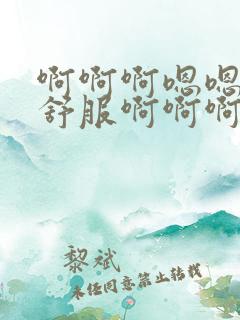 啊啊啊嗯嗯
舒服啊啊啊
黎斌
未经同意禁止转载